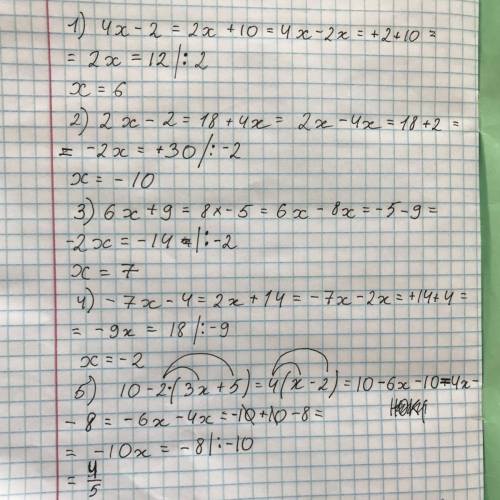 1) 4x - 2 = 2x + 10 = 4x - 2x = +2+10 =
= 2x = 12 |: 2
x = 6
2) 2x - 2 = 18 + 4x = 2x - 4x = 18 + 2 =
= -2x = +30 |: -2
x = - 10
3) 6x + 9 = 8x - 5 = 6x - 8x = -5 - 9 =
-2x = -14 = |: -2
x = 7
4) - 7x - 4 = 2x + 14 = -7x - 2x = +14+4 =
= -9x = 18 |: -9
x = -2
5) 10 - 2·(3x + 5) = 4(x - 2) = 10 - 6x - 10 = 4x -
- 8 = -6x - 4x = -10 + 10 - 8 =
= -10x = -8 |: -10
= 4/5